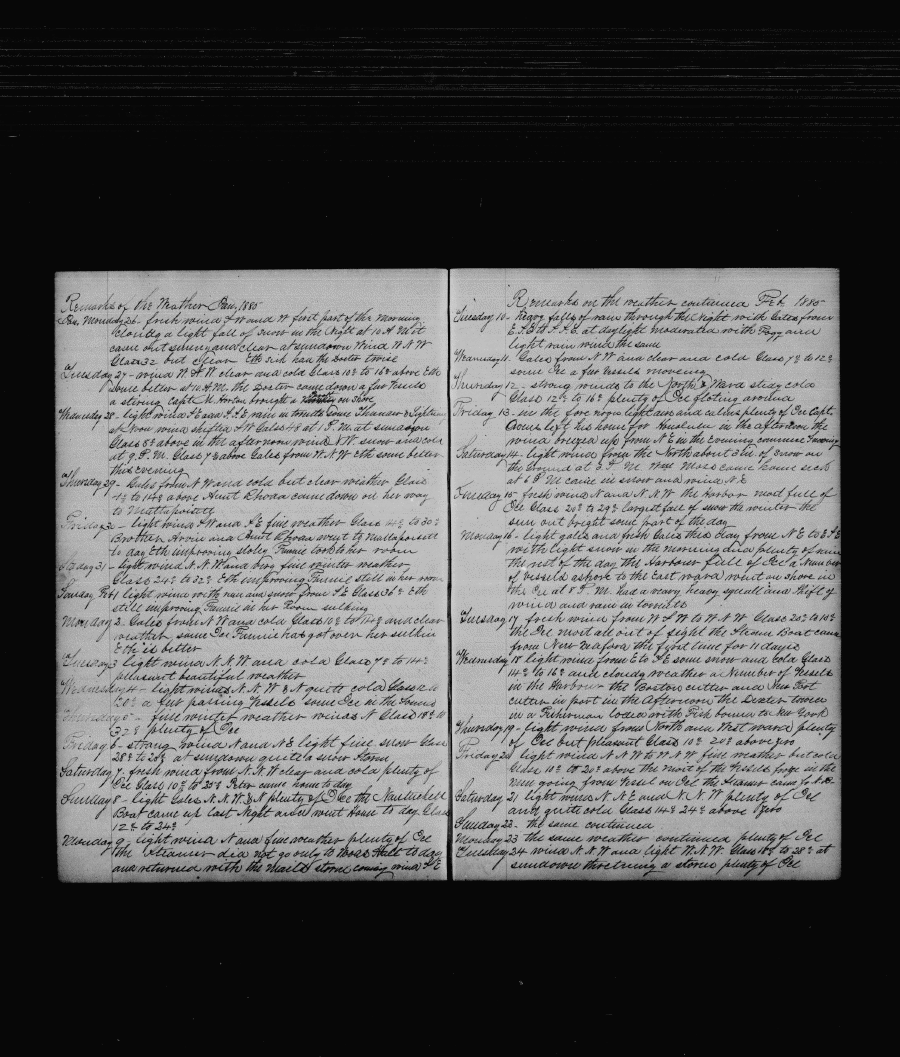 Remarks of the Weather Jan, 1885
Jan. Monday 26 - fresh wind S W and W first part of the morning
Cloudy a light fall of snow in the Night at 10 A M it
came out sunny and clear at sundown Wind W N W
Glass 32 but clear Eth sick had the Doctor twice
Tuesday 27 - wind W N W clear and cold Glass 10° to 16° above Eth
some better at 11 A.M. the Doctor came down a few Vessels
a stiring Capt M. Horton brought a on shore
Wednesday 28 - light wind S E and S S E rain in torrents some Thunder & Lightning
at Noon wind shifted S W Gales 48 at 1 P.M. at sundown
Glass 8° above in the afternoon wind N W. snow and cold
at 9. P.M. Glass 7° above Gales from W N W Eth some better
this evening
Thursday 29 - Gales from N W and cold but clear weather Glass
to 14° above Aunt Rhoda came down on her way
to Mattapoisett
Friday 30 - light wind S W and S E fine weather Glass 14° to 30°
Brother Arvin and Aunt Rhoda went to Mattapoisett
to day Eth improving Fannie took to her room
31 - light wind N. N. W and very fine winter weather
Glass 24° to 32° Eth improving Fannie still in her room
Sunday Feb 1 light wind with rain and snow from S E Glass 36° Eth
still improving Fannie in her Room sulking
Monday 2. Gales from N W and cold Glass 10° to 14° and clear
weather some Ice Fannie has got over her sulkin
Eth is better
Tuesday 3 light wind N. N. W and cold Glass 7° to 14°
pleasant beautiful weather
Wednesday 4 - light winds N. N. W & N quite cold Glass
20° a few passing Vessels some Ice in the Sound
Thursday 5 - fine winter weather winds N Glass 18°
32° plenty of Ice
Friday 6 - strong wind N and N E light fine snow Glass
28° to 20° at sundown quite a snow Storm
Saturday 7. fresh wind from N. N. W clear and cold plenty of
Ice Glass 10° to 20° Peter came home to day
Sunday 8 - light Gales N. N. W. & N plenty of Ice the Nantucket
Boat came up last Night and went home to day Glass
12° to 24°
Monday 9 - light wind N and fine weather plenty of Ice
the Steamer did not go only to Woods Hole to day
and returned with the mails storm coming wind S E
Remarks on the weather continued Feb 1885
Tuesday 10 - Heavy falls of rain through the Night with Gales from
E. S. E to S. S. E at daylight moderated with Foggy and
light rain wind the same
Wednesday 11. Gales from N. W and clear and cold Glass 7° to 12°
some Ice a few Vessels moveing
Thursday 12 - strong winds to the North & Ward stedy cold
Glass 12° to 16° plenty of Ice floting around
Friday 13 - in the fore noon light air and calms plenty of Ice Capt
left his home for Honolulu in the afternoon the
wind breezed up from N E in the Evening commenc Snowing
Saturday 14 - light wind from the North about 3 in. of snow on
the Ground at 3. P. M. Moss came home sick
at 6 P M came in snow and wind N. E
Sunday 15 - fresh wind N and N. N. W the Harbor most full of
Ice Glass 20° to 29° largest fall of snow the winter the
sun out bright some part of the day
Monday 16 - light gales and fresh Gales this day from N E to E S E
with light snow in the morning and plenty of rain
the rest of the day the Harbour full of Ice a Number
of Vessels ashore to the East ward went on shore in
the Ice at 8 P. M. had a heavy, heavy squall and shift of
wind and rain in torrents
Tuesday 17 fresh wind from W S W to W N. W Glass 20° to 10°
the Ice most all out of sight the Steam Boat came
from New Bedford the first time for 11 days
Wednesday 18 light wind from E to S. E some snow and cold Glass
14° to 16° and cloudy weather a Number of Vessels
in the Harbour - the Boston cutter and New Port
cutter in port in the afternoon the Dexter towed
in a Fisherman loded with Fish bound to New York
Thursday 19 - light wind from North and West ward plenty
of Ice but pleasant Glass 10° 20° above zero
Friday 20 light wind N. N W to W. N. W fine weather but cold
Glass 10° to 20° above the most of the Vessels froze in the
men going from Vessel on Ice the Steamer came to
Saturday 21 light wind N. N. E and N. N. W plenty of Ice
and quite cold Glass 14° 24° above Zero
Sunday 22 - the same continued
Monday 23 the same weather continued plenty of Ice
Tuesday 24 wind N. N. W and light W. N. W. Glass 18° to 28° at
sundown thretning a storm plenty of Ice